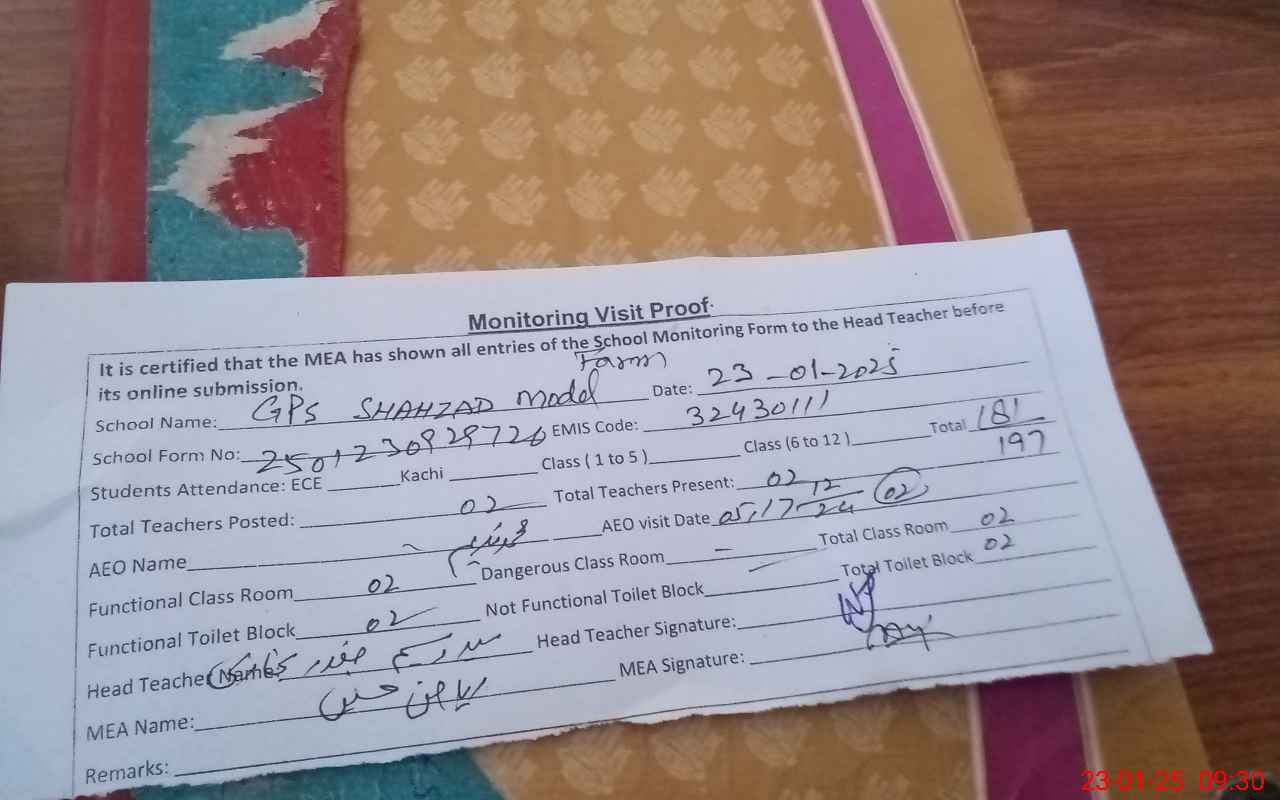 Monitoring Visit Proof
It is certified that the MEA has shown all entries of the School Monitoring Form to the Head Teacher before
its online submission.
School Name: GPS SHAHZAD Model Farm Date: 23-01-2025
School Form No: EMIS Code: 32430111
Students Attendance: ECE Kachi Class ( 1 to 5 ) Class (6 to 12 ) Total 181
197
Total Teachers Posted: 02 Total Teachers Present: 02
AEO Name AEO visit Date 05,17 12 24 02
Functional Class Room 02 Dangerous Class Room – Total Class Room 02
Functional Toilet Block 02 Not Functional Toilet Block Total Toilet Block 02
Head Teacher Name: Head Teacher Signature:
MEA Name: MEA Signature:
Remarks:
23-01-25 09:30